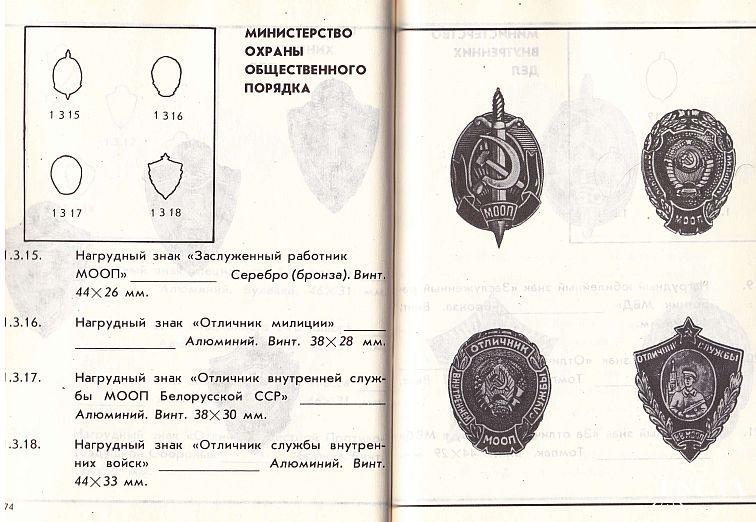 МИНИСТЕРСТВО
ОХРАНЫ
ОБЩЕСТВЕННОГО
ПОРЯДКА
1315
1316
1317
1318
1.3.15. Нагрудный знак «Заслуженный работник
МООП» Серебро (бронза). Винт.
44×26 мм.
1.3.16. Нагрудный знак «Отличник милиции»
Алюминий. Винт. 38×28 мм.
1.3.17. Нагрудный знак «Отличник внутренней служ-
бы МООП Белорусской ССР»
Алюминий. Винт. 38×30 мм.
1.3.18. Нагрудный знак «Отличник службы внутрен-
них войск» Алюминий. Винт.
44×33 мм.
74
МООП
МООП
ОТЛИЧНИК
ВНУТРЕННЕЙ
СЛУЖБЫ
МООП
ОТЛИЧНИК СЛУЖБЫ
ВВ МООП